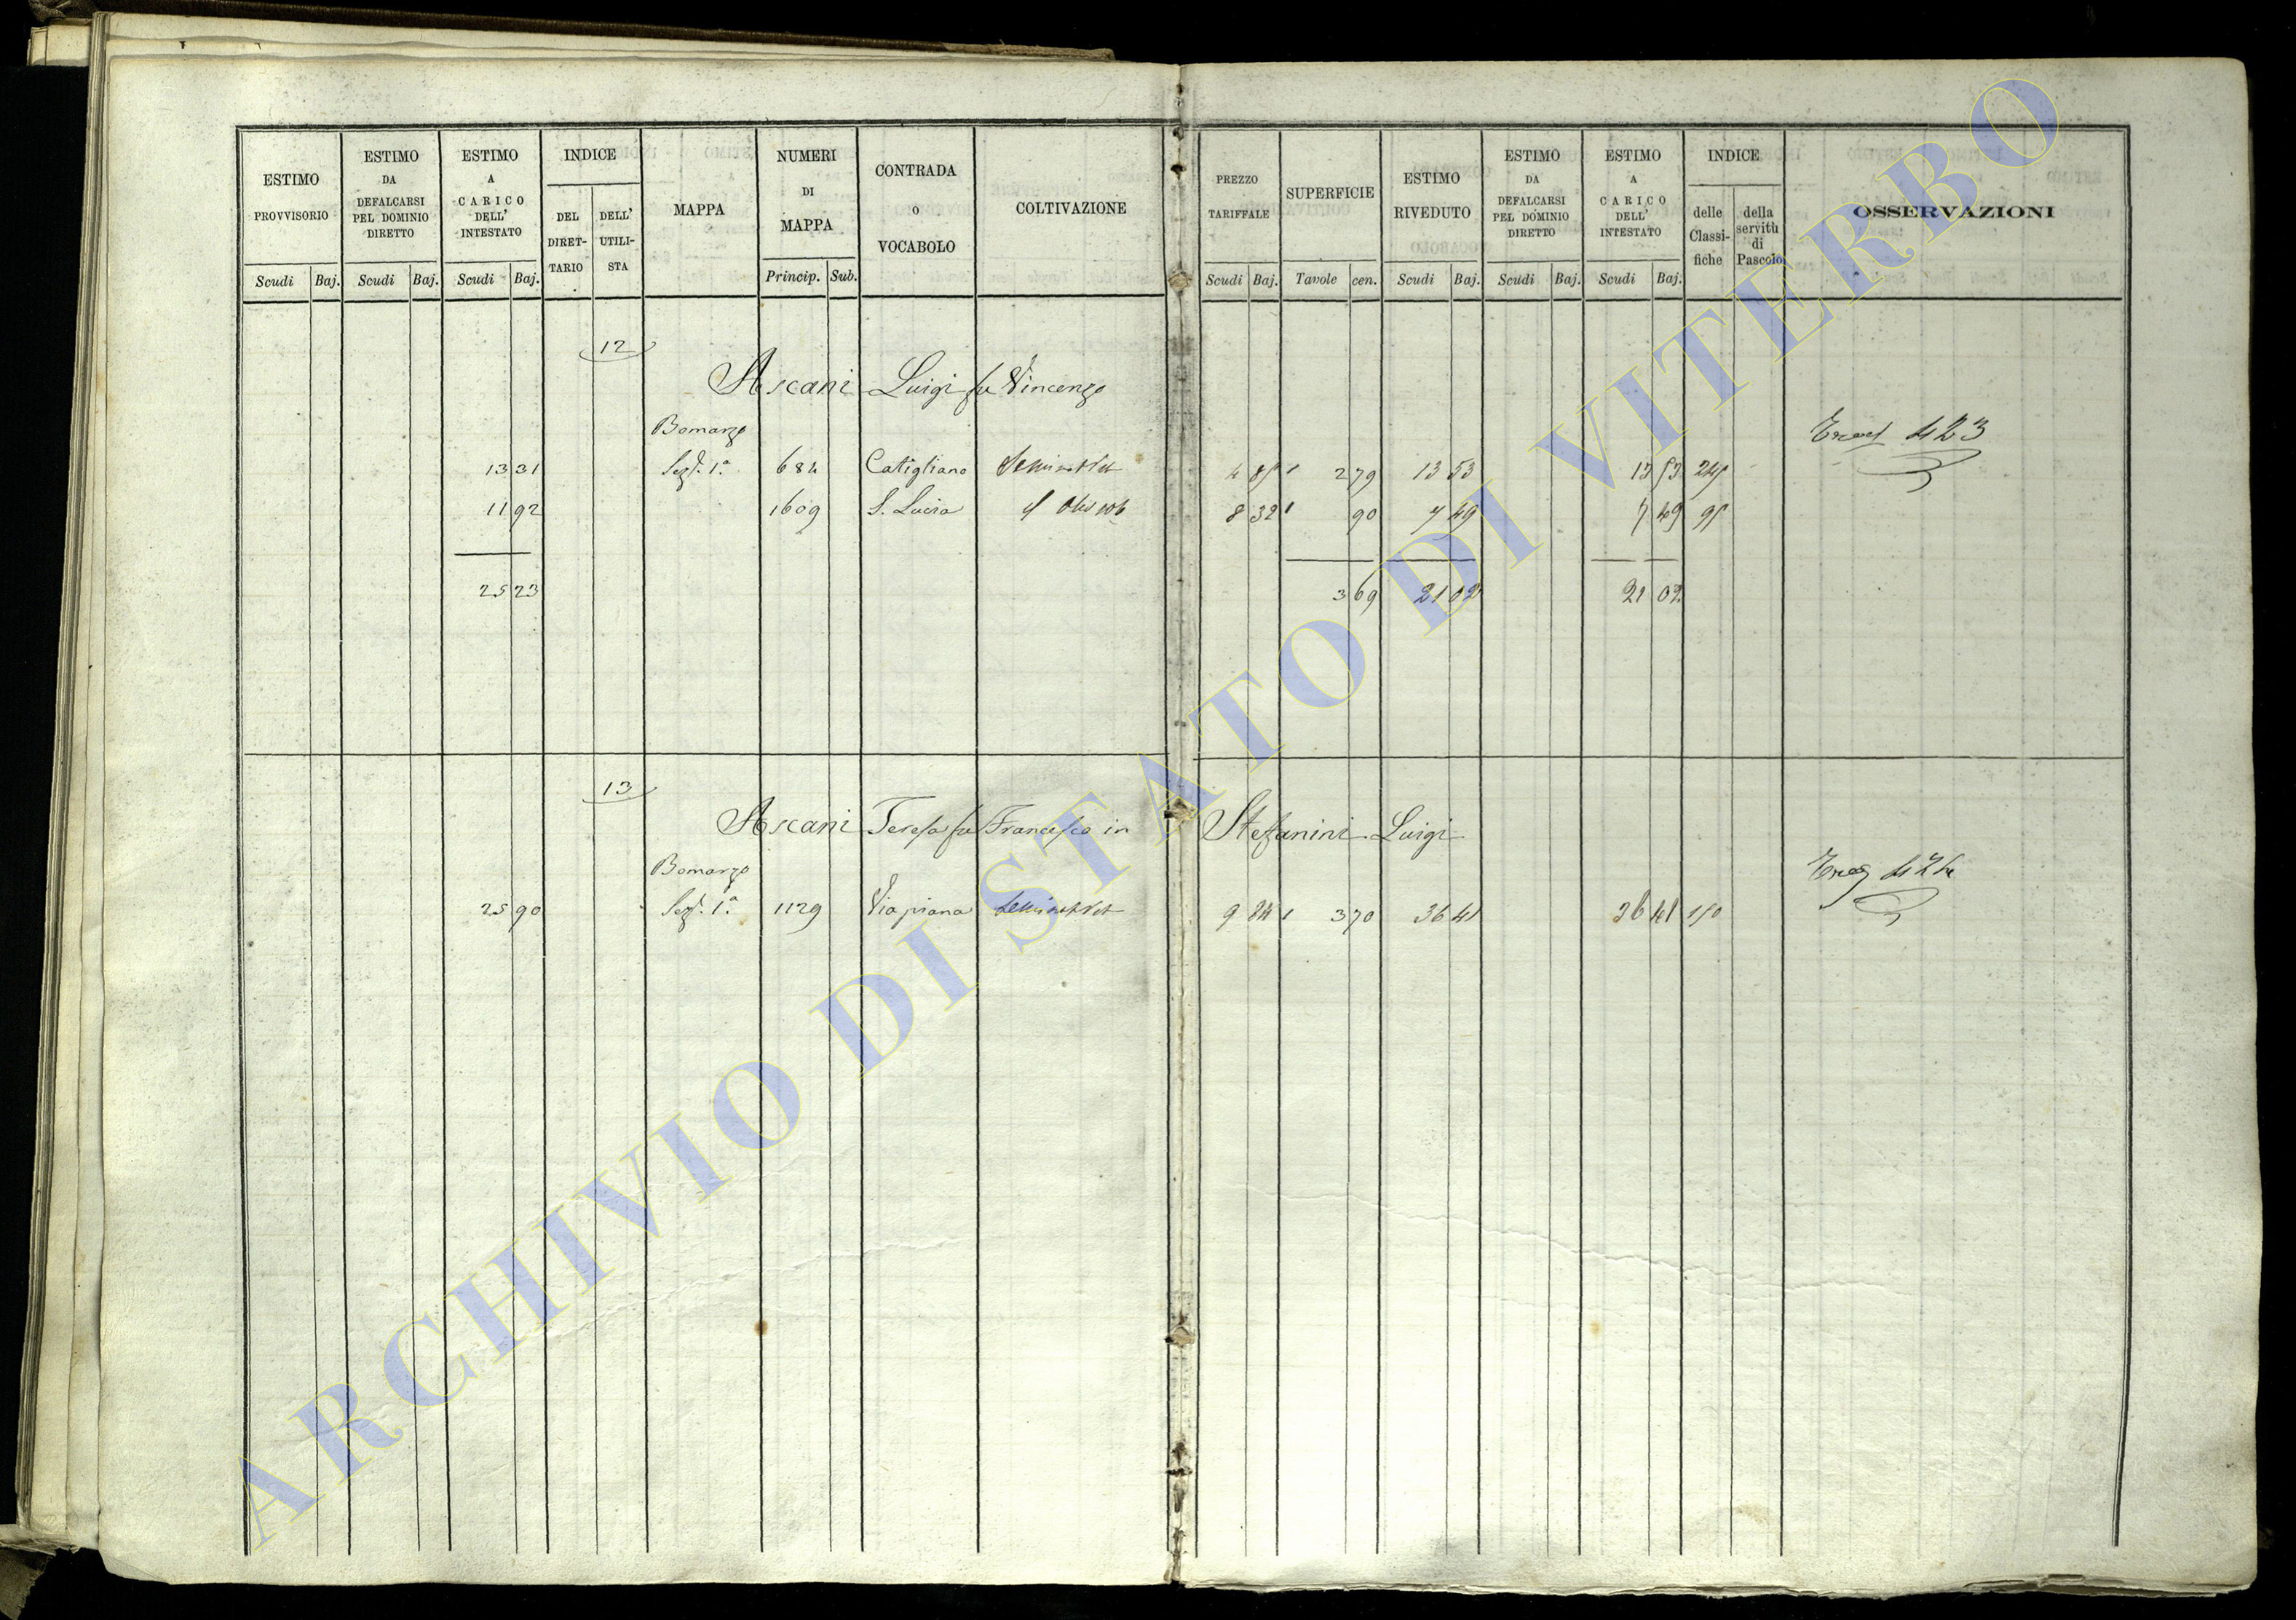 ESTIMO PROVVISORIO
Scudi Baj.
ESTIMO DA DEFALCARSI PEL DOMINIO DIRETTO
Scudi Baj.
ESTIMO A CARICO DELL' INTESTATO
Scudi Baj.
INDICE
DEL DIRET-TARIO
DELL' UTILI-STA
MAPPA
NUMERI DI MAPPA
Princip. Sub.
CONTRADA O VOCABOLO
COLTIVAZIONE
PREZZO TARIFFALE
Scudi Baj.
SUPERFICIE
Tavole cen.
ESTIMO RIVEDUTO
Scudi Baj.
ESTIMO DA DEFALCARSI PEL DOMINIO DIRETTO
Scudi Baj.
ESTIMO A CARICO DELL' INTESTATO
Scudi Baj.
INDICE
delle Classi-fiche
della servitù di Pascolo
OSSERVAZIONI
12
Ascani Luigi fu Vincenzo
Bomarzo
423
13 31 Sez. 1ª 684 Catigliano 4 85 2 79 13 53 13 53 245
11 92 1609 S. Lucia 8 32 90 7 49 7 49 95
25 23 3 69 21 02 21 02
13
Ascani Teresa fu Francesco in Stefanini Luigi
Bomarzo
424
25 90 Sez. 1ª 1129 Viapiana 9 84 3 70 36 41 36 41 150
ARCHIVIO DI STATO DI VITERBO